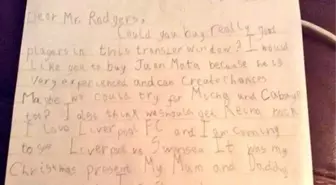 Dear Mr. Rodgers,
Could you buy really good
players in this transfer window? I would
like you to buy Juan Mata because he is
very experienced and can create chances
Maybe we could try for Micha and Cabaye
too? I also think we should get Reina back
I love Liverpool FC and I am coming
to see Liverpool vs Swansea It was my
Christmas present My Mum and Daddy